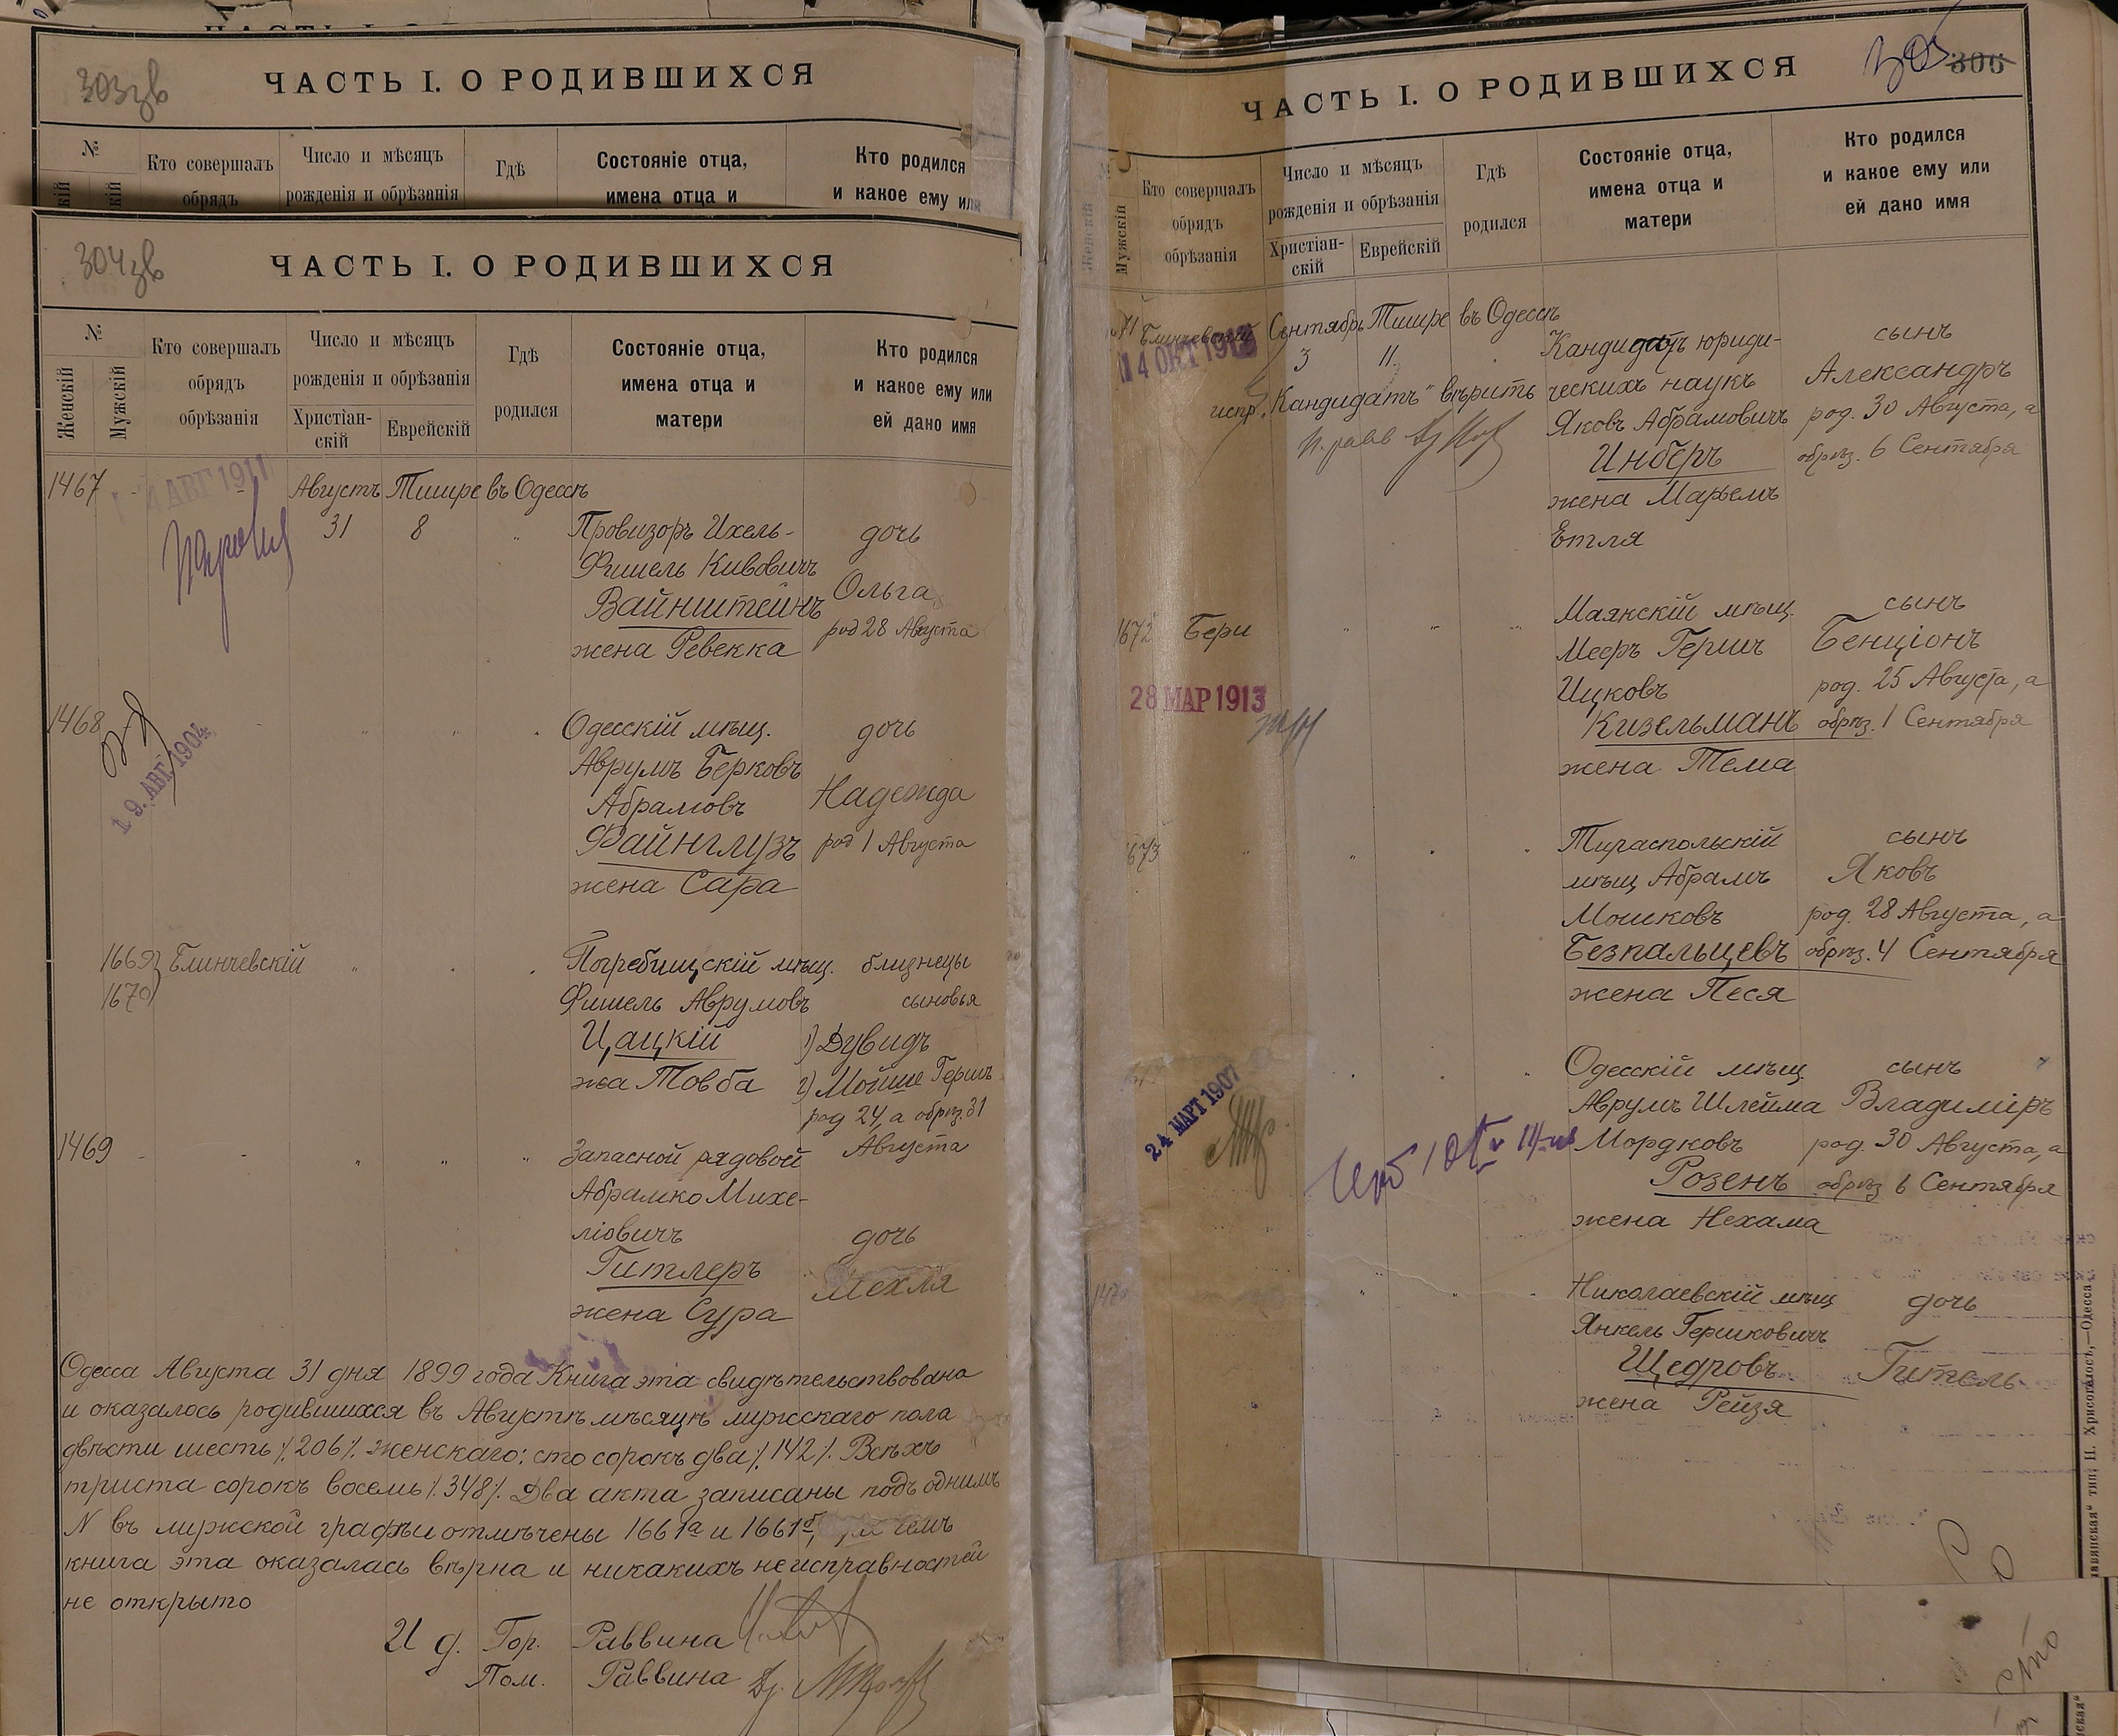 303зв
ЧАСТЬ I. О РОДИВШИХСЯ
№
Кто совершалъ
обрядъ
Число и мѣсяцъ
рожденія и обрѣзанія
Гдѣ
Состояніе отца,
имена отца и
Кто родился
и какое ему или
304зв
ЧАСТЬ I. О РОДИВШИХСЯ
№
Женскій
Мужскій
Кто совершалъ
обрядъ
обрѣзанія
Число и мѣсяцъ
рожденія и обрѣзанія
Христіан-
скій
Еврейскій
Гдѣ
родился
Состояніе отца,
имена отца и
матери
Кто родился
и какое ему или
ей дано имя
1467
4 АВГ 1911
Августъ Тишре въ Одессѣ
31 8
Провизоръ Ихель-
Фишель Кивовичъ
Вайнштейнъ
жена Ревекка
дочь
Ольга
род 28 Августа
1468
19. АВГ 1904
Одесскій мѣщ.
Аврумъ Берковъ
Абрамовъ
Файнглузъ
жена Сара
дочь
Надежда
род 1 Августа
1669
1670
Блинчевскій
Погребищскій мѣщ.
Фишель Аврумовъ
Цацкій
жа Товба
близнецы
сыновья
1) Дувидъ
2) Мойше Гершъ
род 24, а обрѣз. 31
Августа
1469
Запасной рядовой
Абрамко Михе-
ліовичъ
Гитлеръ
жена Сура
дочь
Мехля
Одесса Августа 31 дня 1899 года Книга эта свидѣтельствована
и оказалось родившихся въ Августѣ мѣсяцѣ мужскаго пола
двѣсти шесть ٪ 206 ٪. женскаго: сто сорокъ два ٪ 142 ٪. Всѣхъ
триста сорокъ восемь ٪ 348 ٪. Два акта записаны подъ однимъ
N въ мужской графѣ и отмѣчены 1661а и 1661б,
книга эта оказалась вѣрна и никакихъ неисправностей
не открыто
И д. Гор. Раввина
Пом. Раввина
305 306
ЧАСТЬ I. О РОДИВШИХСЯ
Женскій
Мужскій
Кто совершалъ
обрядъ
обрѣзанія
Число и мѣсяцъ
рожденія и обрѣзанія
Христіан-
скій
Еврейскій
Гдѣ
родился
Состояніе отца,
имена отца и
матери
Кто родился
и какое ему или
ей дано имя
Блинчевскій
14 ОКТ 1913
Сентябрь Тишре въ Одессѣ
3 11
испр. „Кандидатъ" вѣрить
Кандидатъ юриди-
ческихъ наукъ
Яковъ Абрамовичъ
Инберъ
жена Марьемъ
Етля
сынъ
Александръ
род. 30 Августа, а
обрѣз. 6 Сентября
1672
Бери
28 МАР 1913
Маякскій мѣщ.
Мееръ Гершъ
Ицковъ
Кизельманъ
жена Тема
сынъ
Бенціонъ
род. 25 Августа, а
обрѣз. 1 Сентября
1673
Тираспольскій
мѣщ Абрамъ
Мошковъ
Безпальцевъ
жена Песя
сынъ
Яковъ
род. 28 Августа, а
обрѣз. 4 Сентября
24 МАРТ 1907
Одесскій мѣщ.
Аврумъ Шлейма
Мордковъ
Розенъ
жена Нехама
сынъ
Владиміръ
род. 30 Августа, а
обрѣз 6 Сентября
1470
Николаевскій мѣщ
Янкель Гершковичъ
Щедровъ
жена Рейзя
дочь
Гитель
тип. Н. Хрисогелосъ,—Одесса